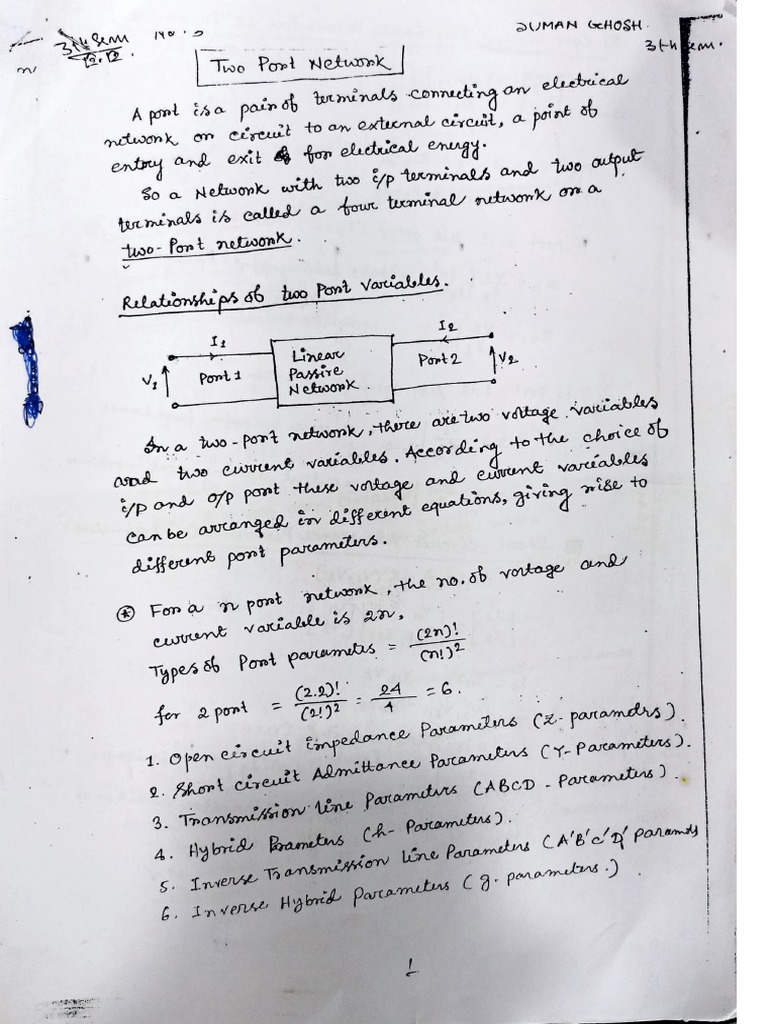 3rd Sem
SUMAN GHOSH.
3rd sem.
Two Port Network
A port is a pair of terminals connecting an electrical
network or circuit to an external circuit, a point of
entry and exit for electrical energy.
So a Network with two i/p terminals and two output
terminals is called a four terminal network or a
two-Port network.
Relationships of two Port Variables.
I1
I2
V1
Port 1
Linear
Passive
Network
Port 2
V2
In a two-port network, there are two voltage variables
and two current variables. According to the choice of
i/p and o/p port these voltage and current variables
can be arranged in different equations, giving rise to
different port parameters.
* For a n port network, the no. of voltage and
current variable is 2n,
Types of Port parameters = (2n)! / (n!)²
for 2 port = (2.2)! / (2!)² = 24 / 4 = 6.
1. Open circuit impedance Parameters (Z-paramdrs).
2. Short circuit Admittance Parameters (Y-Parameters).
3. Transmission line Parameters (ABCD - Parameters).
4. Hybrid Parameters (h- Parameters).
5. Inverse Transmission line Parameters (A'B'C'D' params
6. Inverse Hybrid Parameters (g. parameters.)
1